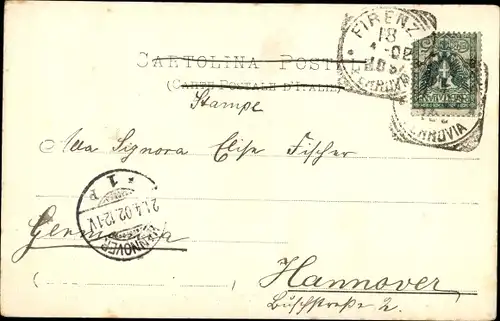 CARTOLINA POSTALE
(CARTE POSTALE D'ITALIE)
Stampe
FIRENZE
18
4-02
FERROVIA
FERROVIA
Alla Signora Elise Fischer
HANNOVER
* 1 P
21.4.02.12-1V
Germania
Hannover
Buschstraße 2.